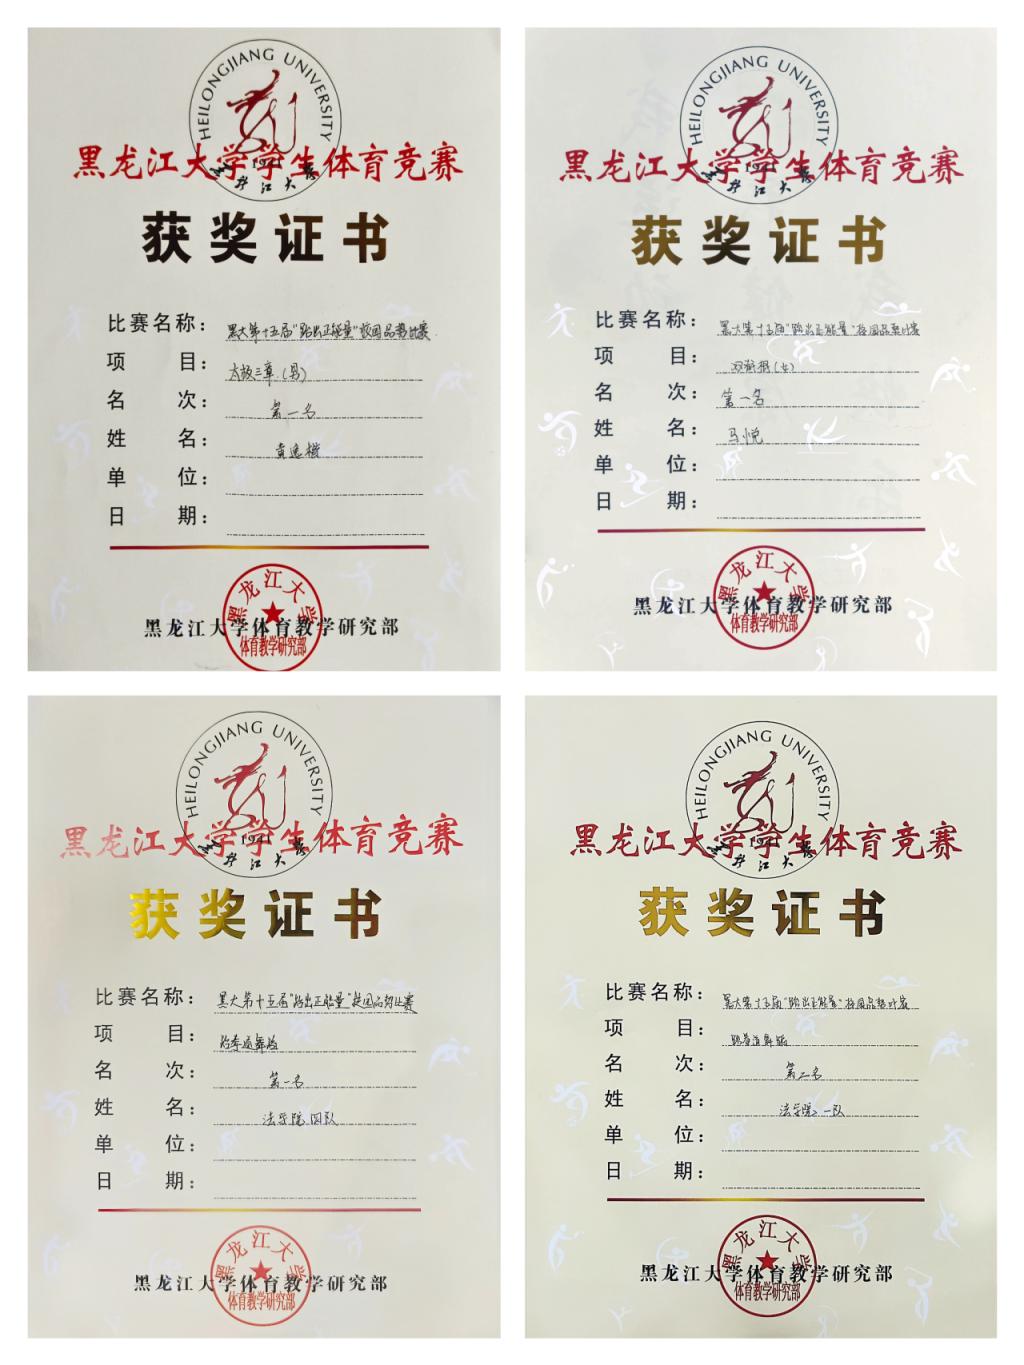 HEILONGJIANG UNIVERSITY
1941
黑龙江大学
黑龙江大学学生体育竞赛
获奖证书
比赛名称：黑大第十五届“跆出正能量”校园品势比赛
项目：太极三章（男）
名次：第一名
姓名：黄逸
单位：
日期：
黑龙江大学体育教学研究部
黑龙江大学
体育教学研究部
HEILONGJIANG UNIVERSITY
1941
黑龙江大学
黑龙江大学学生体育竞赛
获奖证书
比赛名称：黑大第十五届“跆出正能量”校园品势比赛
项目：（女）
名次：第一名
姓名：马悦
单位：
日期：
黑龙江大学体育教学研究部
黑龙江大学
体育教学研究部
HEILONGJIANG UNIVERSITY
1941
黑龙江大学
黑龙江大学学生体育竞赛
获奖证书
比赛名称：黑大第十五届“跆出正能量”校园品势比赛
项目：跆拳道舞
名次：第一名
姓名：法学院团队
单位：
日期：
黑龙江大学体育教学研究部
黑龙江大学
体育教学研究部
HEILONGJIANG UNIVERSITY
1941
黑龙江大学
黑龙江大学学生体育竞赛
获奖证书
比赛名称：黑大第十五届“跆出正能量”校园品势比赛
项目：跆拳道舞
名次：第二名
姓名：法学院一队
单位：
日期：
黑龙江大学体育教学研究部
黑龙江大学
体育教学研究部